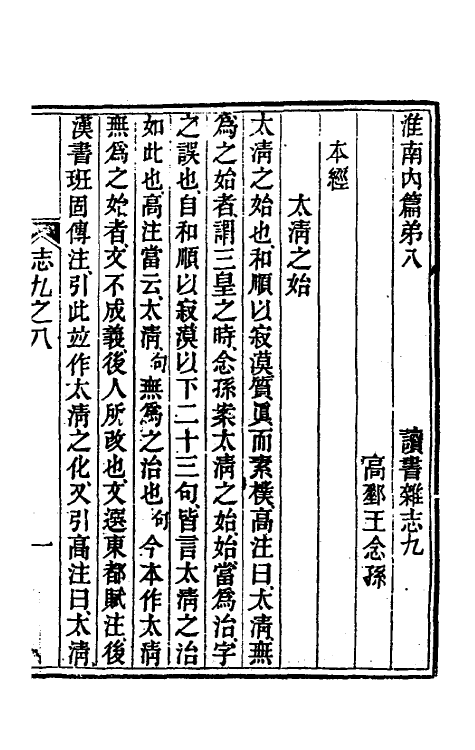 淮南內篇弟八　讀書雜志九
高郵王念孫
本經
太淸之始
太淸之始也、和順以寂漠、質眞而素樸、高注曰、太淸、無
爲之始者、謂三皇之時、念孫案太淸之始始當爲治、字
之誤也、自和順以寂漠以下二十三句、皆言太淸之治
如此也、高注當云、太淸、句無爲之治也、句今本作太淸
無爲之始者、文不成義、後人所改也、文選東都賦注、後
漢書班固傳注、引此竝作太淸之化、又引高注曰、太淸
志九之八　一